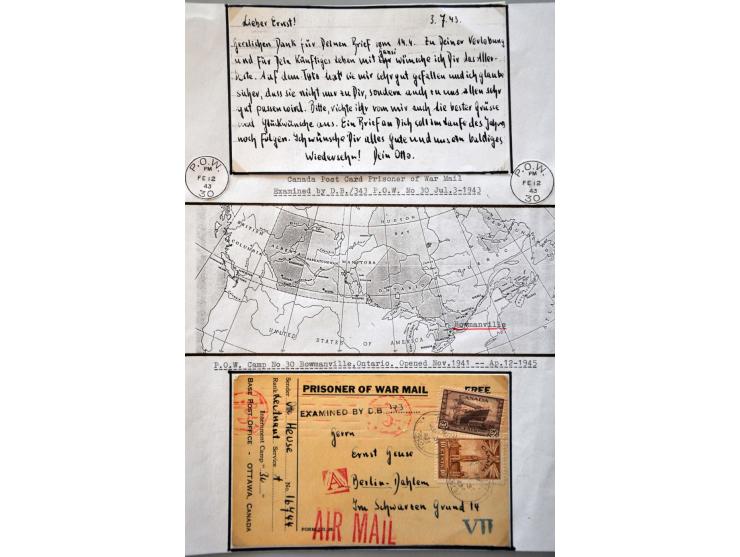 Lieber Ernst! 3.7.43.
Herzlichen Dank für Deinen Brief vom 14.4. Zu Deiner Verlobung
und für Dein künftiges Leben mit ihr wünsche ich Dir das Aller-
beste. Auf dem Foto hat sie mir sehr gut gefallen und ich glaube
sicher, dass sie nicht nur zu Dir, sondern auch zu uns allen sehr
gut passen wird. Bitte, richte ihr von mir auch die besten Grüsse
und Glückwünsche aus. Ein Brief an Dich soll im Laufe des Jahres
noch folgen. Ich wünsche Dir alles Gute und uns ein baldiges
Wiedersehn! Dein Otto.
P.O.W.
PM
FE 12
43
30
P.O.W.
PM
FE 12
43
30
Canada Post Card Prisoner of War Mail
Examined by D.B./343 P.O.W. No 30 Jul.3-1943
HUDSON
BAY
BRITISH
COLUMBIA
ALBERTA
SASKATCHEWAN
MANITOBA
ONTARIO
QUEBEC
UNITED
STATES OF AMERICA
Bowmanville
P.O.W. Camp No 30 Bowmanville,Ontario. Opened Nov.1941 -- Ap.12-1945
PRISONER OF WAR MAIL FREE
EXAMINED BY D.B.
CANADA
CANADA
Herrn
Ernst Geuse
Berlin-Dahlem
Im Schwarzen Grund 14
A
AIR MAIL
VII
Sender
Heuse
No 16744
Rank Leutnant Service A
Internment Camp "30"
BASE POST OFFICE - OTTAWA, CANADA